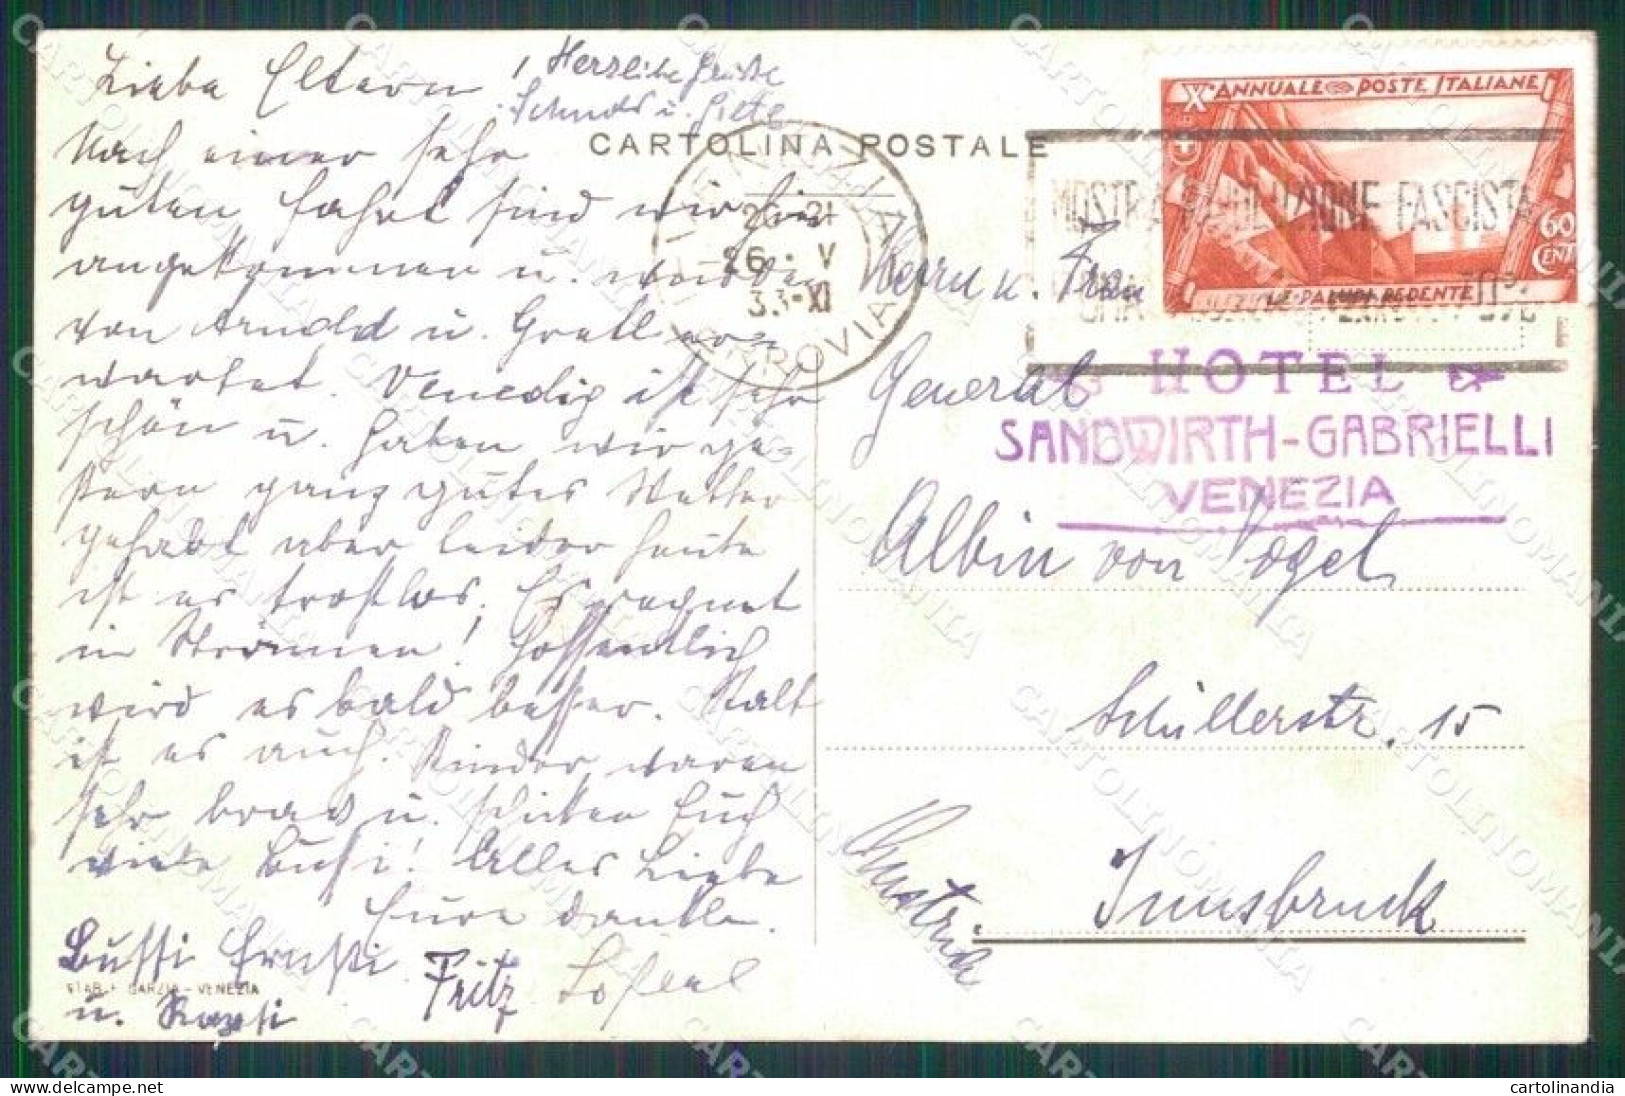 Liebe Eltern!
Herzliche Grüße
Nach einer sehr
guten Fahrt sind wir hier
angekommen u. wurden
von Arnold u. Gretl er-
wartet. Venedig ist sehr
schön u. haben wir ge-
stern ganz gutes Wetter
gehabt aber leider heute
ist es trostlos. Es regnet
in Strömen! Hoffentlich
wird es bald besser. Kalt
ist es auch. Kinder waren
sehr brav u. schicken Euch
viele Bussi! Alles Liebe
Eure dankb.
Bussi Ernsti
Fritz
u.
STAB. F. GARZIA - VENEZIA
CARTOLINA POSTALE
VENEZIA
20-21
26·V
33·XI
FERROVIA
Xº ANNUALE POSTE ITALIANE
60
CENT
LE PALUDI REDENTE
MOSTRA RIVOLUZIONE FASCISTA
ROMA
HOTEL
SANDWIRTH-GABRIELLI
VENEZIA
Herrn u. Frau
General
Albin von Vogel
Schüllerstr. 15
Innsbruck
Austria
CARTOLINOMANIA
cartolinandia